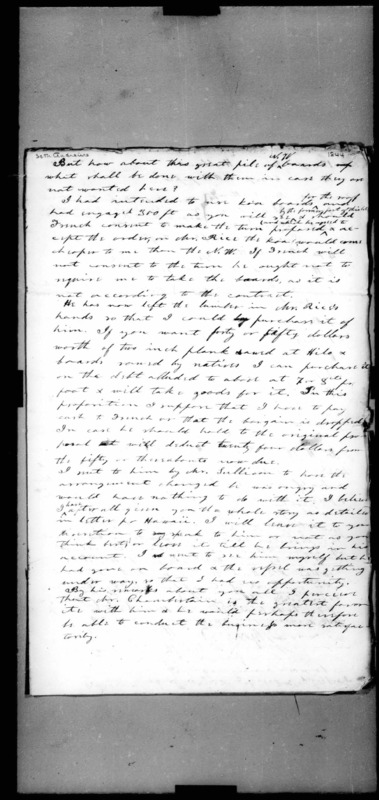 Seth Andrews 1844
N.W.
But how about this great pile of boards &
what shall be done with them in case they are
not wanted here?
I had intended to use koa boards for the roof and
had engaged 500 ft as you will
French consent to make the turn proposed & ac-
cept the order, on Mr. Rice the koa would come
cheaper to me than the N.W. If French will
not consent to the turn he ought not to
require me to take the boards, as it is
not according to the contract.
He has now left the lumber in Mr. Rice's
hands so that I could purchase it of
him. If you want forty or fifty dollars
worth of two inch plank sawed at Hilo &
boards sawed by natives I can purchase it
on the debt alluded to above at 7 or 8 cts per
foot & will take goods for it. In this
proposition I suppose that I have to pay
cash to French or that the bargain is dropped.
In case he should hold to the original pro-
posal it will deduct twenty four dollars from
the fifty or thereabouts now due.
I sent to him by Mr. Sullivan to have the
arrangement changed he was angry and
would have nothing to do with it. I believe
I have given you the whole story as detailed
in letter pr Hawaii. I will leave it to your
discretion to speak to him or not as you
think best, or leave it till he brings in his
account. I went to see him myself but he
had gone on board & the vessel was getting
under way, so that I had no opportunity.
By his remarks about you all I perceive
that Mr. Chamberlain is the greatest favor-
ite with him & he would perhaps therefore
be able to conduct the business more satisfac-
torily.